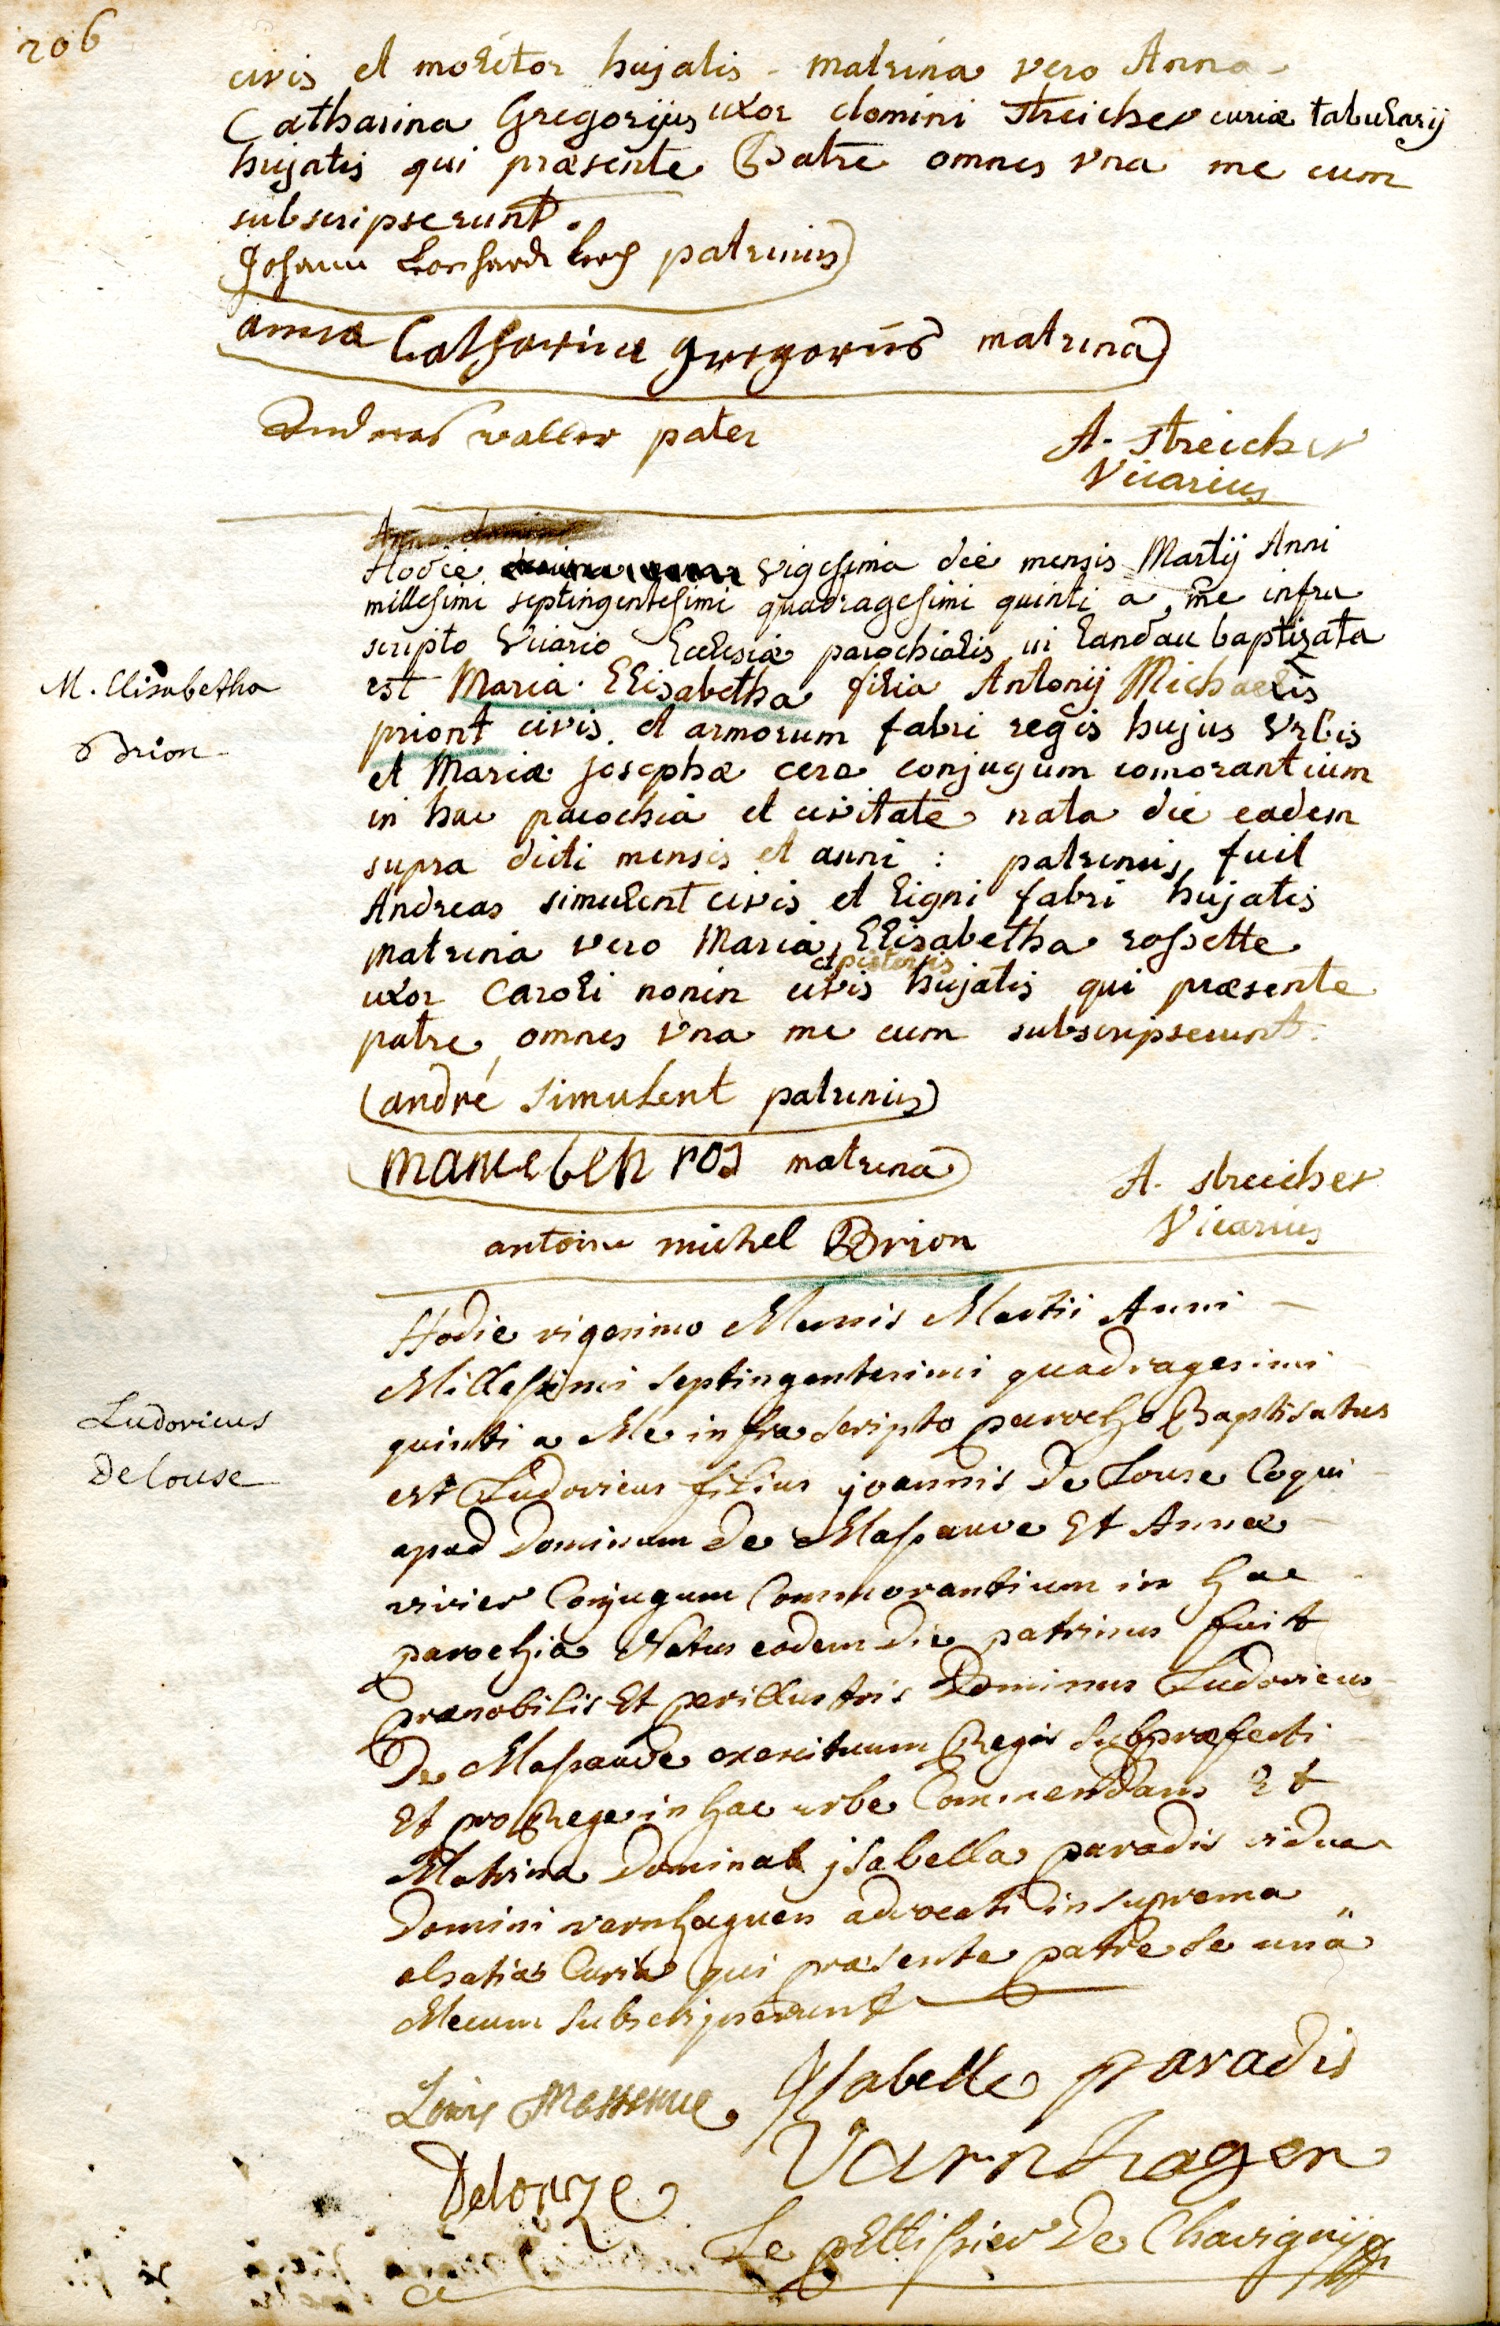 206
civis et molitor hujatis - matrina vero Anna -
Catharina Gregorijus uxor domini Streicher curiæ tabularij
hujatis qui præsente Patre omnes vna me cum
subscripserunt.
Johann Leonhardt patrinus
anna Catharina gregoriuß matrina
Andreas waller pater
A. Streicher
Vicarius
Hodie vigesima die mensis Martij Anni
millesimi septingentesimi quadragesimi quinti a me infra
scripto Vicario Ecclesiæ parochialis in Landau baptizata
M. Elisabetha
est Maria Elisabetha filia Antonij Michaelis
Brion
priont civis et armorum fabri regis hujus Vrbis
et Mariæ Josephæ cera conjugum comorantium
in hac parochia et civitate nata die eadem
supra dicti mensis et anni : patrinus fuit
Andreas simulent civis et ligni fabri hujatis
matrina vero Maria Elisabetha rossette
et pistoris
uxor Caroli nonin civis hujatis qui præsente
patre omnes vna me cum subscripserunt.
andré simulent patrinus
marie beh ros matrina
A. streicher
Vicarius
antoine michel Brion
Hodie vigesimo Mensis Martii Anni -
Millesimi septingentesimi quadragesimi
Ludovicus
quinti a Me infra scripto parocho Baptisatus
Delouse
est Ludovicus filius joannis De Louse Coqui
apud Dominum De Massauve Et Annæ
vivier Conjugum Commorantium in hac
parochia Natus eodem Die patrinus fuit
prænobilis Et perillustris Dominus Ludovicus
De Massauve exercituum Regis subpræfecti
Et pro Rege in hac urbe Commendans Et
Matrina Domina jsabella paradis vidua
Domini varnhaguen advocati in suprema
alsatiæ Curia qui præsente patre se una
Mecum subscripserunt
Louis Massauve Ysabelle paradis
Varnhagen
Delouze
Le pellissier De Chavignij